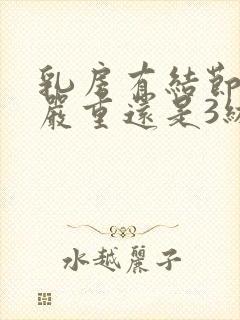 乳房有結節
嚴重還是3級
水越麗子